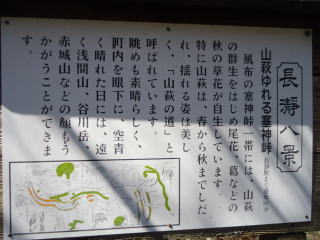 長瀞八景
山萩ゆれる塞神峠
風布の塞神峠一帯には、山萩
の群生をはじめ尾花、葛などの
秋の草花が自生しています。
特に山萩は、春から秋までしだ
れ、揺れる姿は美し
く、「山萩の道」と
呼ばれています。
眺めも素晴らしく、
町内を眼下に、空青
く晴れた日には、遠
く浅間山、谷川岳、
赤城山などの顔もう
かがうことができま
す。